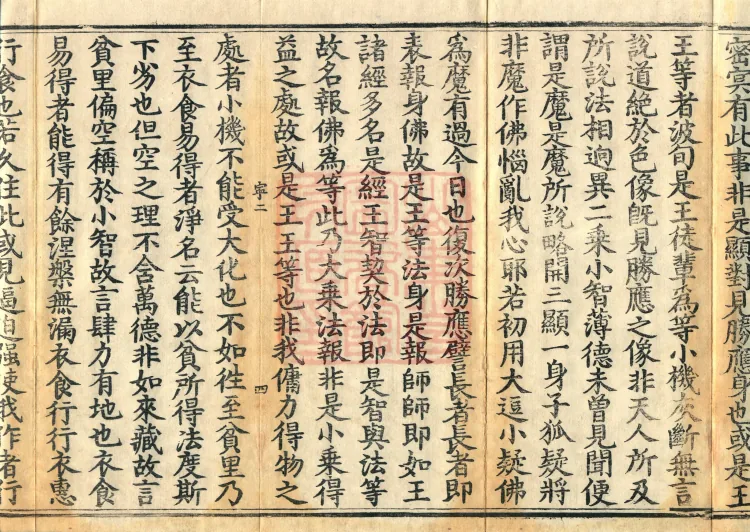 密冥有此事非是顯對見勝應身也或是王
王等者波旬是王徒輩為等小機灰斷無言
說道絕於色像旣見勝應之像非天人所及
所說法相逈異二乘小智薄德未曾見聞便
謂是魔是魔所說略開三顯一身子狐疑將
非魔作佛惱亂我心耶若初用大逗小疑佛
為魔有過今日也復次勝應譬長者長者即
表報身佛故是王等法身是報師師即如王
諸經多名是經王智契於法即是智與法等
故名報佛為等此乃大乘法報非是小乘得
益之處故或是王王等也非我傭力得物之
寧二
四
處者小機不能受大化也不如往至貧里乃
至衣食易得者淨名云能以貧所得法度斯
下劣也但空之理不含萬德非如來藏故言
貧里偏空稱於小智故言肆力有地也衣食
易得者能得有餘涅槃無漏衣食行行衣惠
行食也若久住此或見逼迫強使我作者行